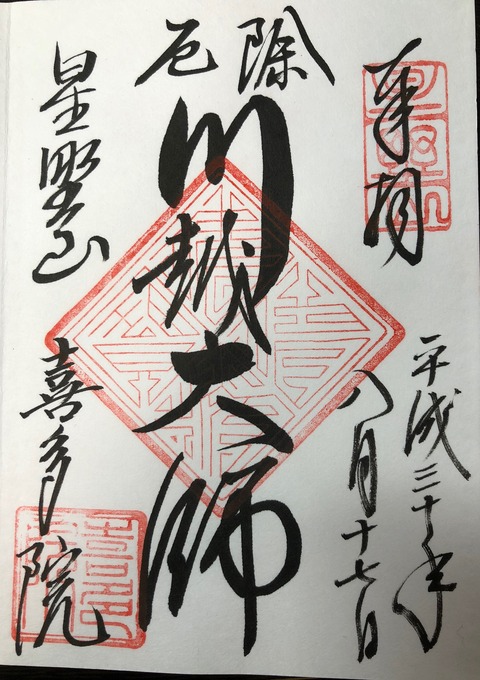 奉拝
平成三十年
八月十七日
厄除
川越大師
星野山
喜多院